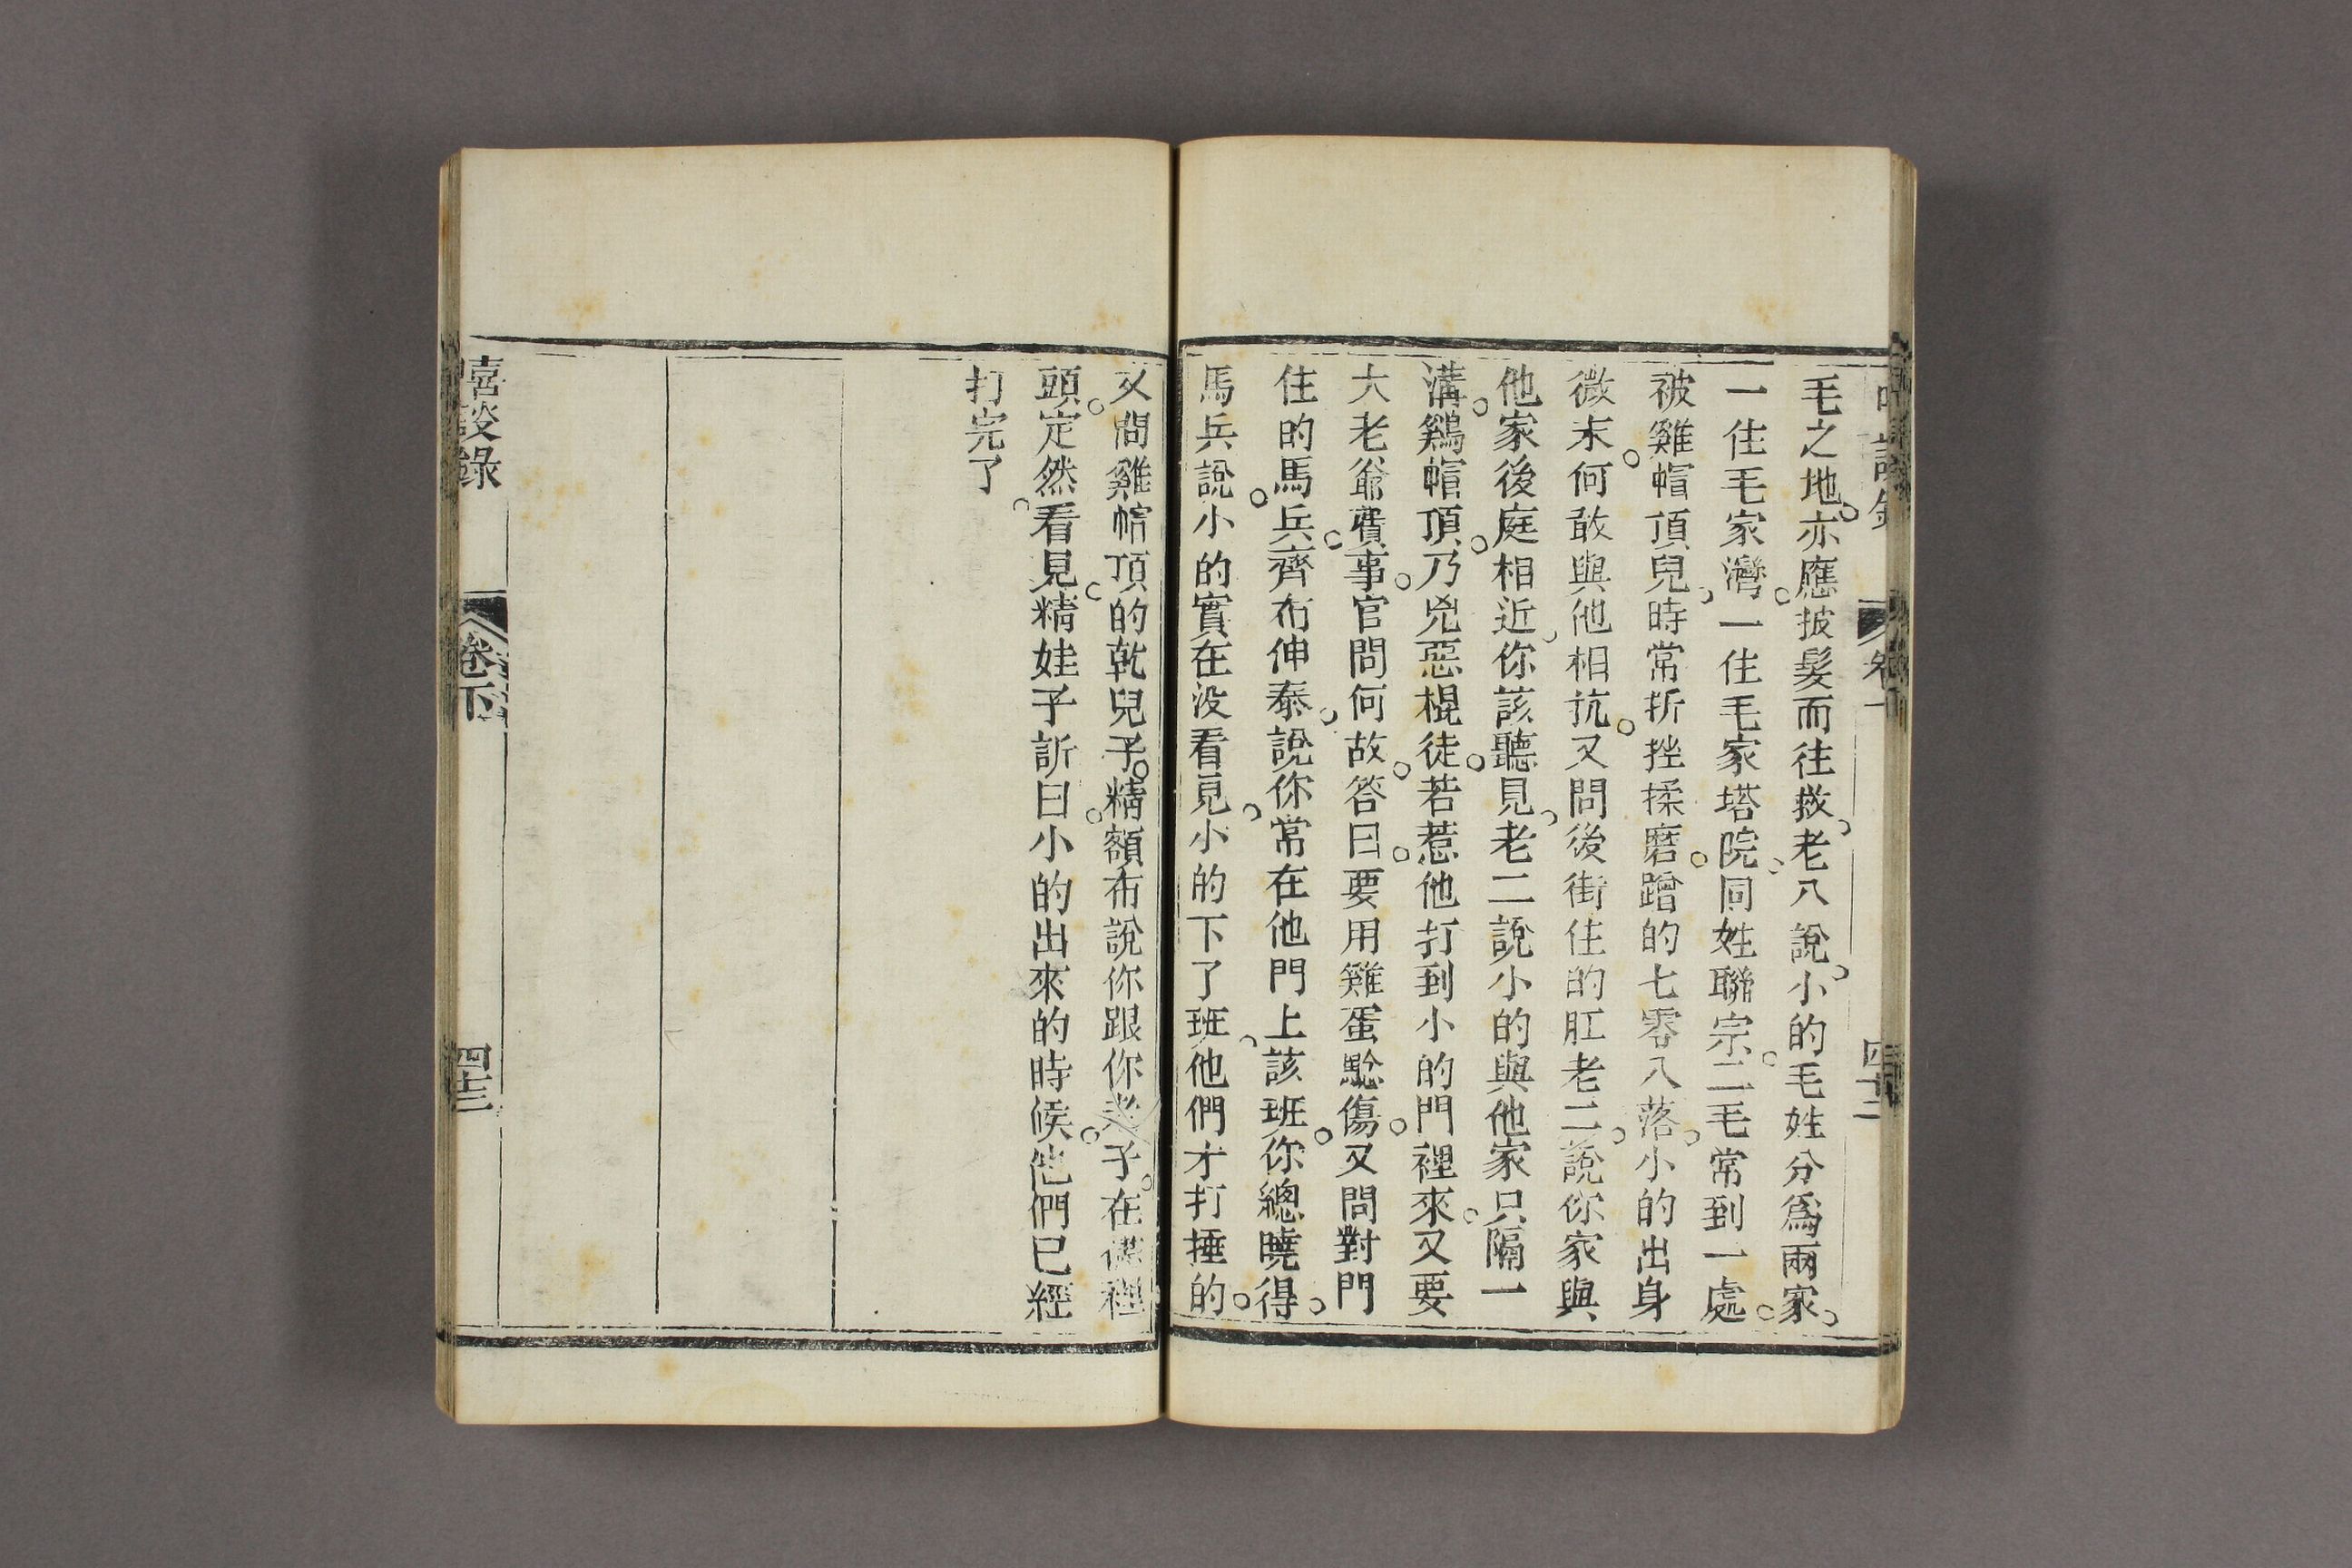 毛之地亦應披髮而往救老八說小的毛姓分爲兩家
一住毛家灣一住毛家塔院同姓聯宗二毛常到一處
被雞帽頂兒時常折挫揉磨蹭的七零八落小的出身
微末何敢與他相抗又問後街住的肛老二說你家與
他家後庭相近你該聽見老二說小的與他家只隔一
溝鷄帽頂乃兇惡棍徒若惹他打到小的門裡來又要
大老爺費事官問何故答曰要用雞蛋驗傷又問對門
住的馬兵齊布伸泰說你常在他門上該班你總曉得
馬兵說小的實在没看見小的下了班他們才打捶的
又問雞帽頂的乾兒子精額布說你跟你老子在裡
頭定然看見精娃子訴曰小的出來的時候他們已經
打完了
嘻談錄
卷下
四十三